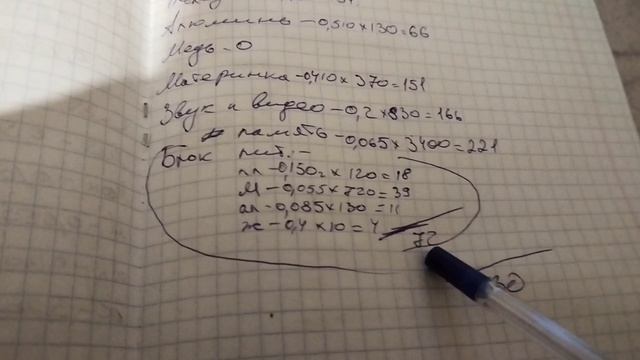 Алюминь - 0,510 x 130 = 66
Медь - 0
Материнка - 0,410 x 370 = 151
Звук и видео - 0,2 x 830 = 166
память - 0,065 x 3400 = 221
Блок пит. -
пл - 0,150 x 120 = 18
М - 0,055 x 720 = 39
ал - 0,085 x 130 = 11
ж - 0,4 x 10 = 4
72